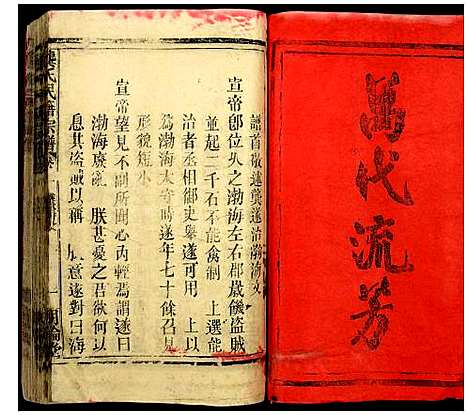 萬代流芳
譜首敬述龔遂治渤海文
宣帝卽位久之渤海左右郡歲饑盜賊
並起二千石不能禽制　上選能
治者丞相御史擧遂可用　上以
爲渤海太守時遂年七十餘召見
形貌短小
宣帝望見不副所聞心內輕焉謂遂曰
渤海廢亂　朕甚憂之君欲何以
息其盜賊以稱　朕意遂對曰海
龔氏
宗譜
明倫堂